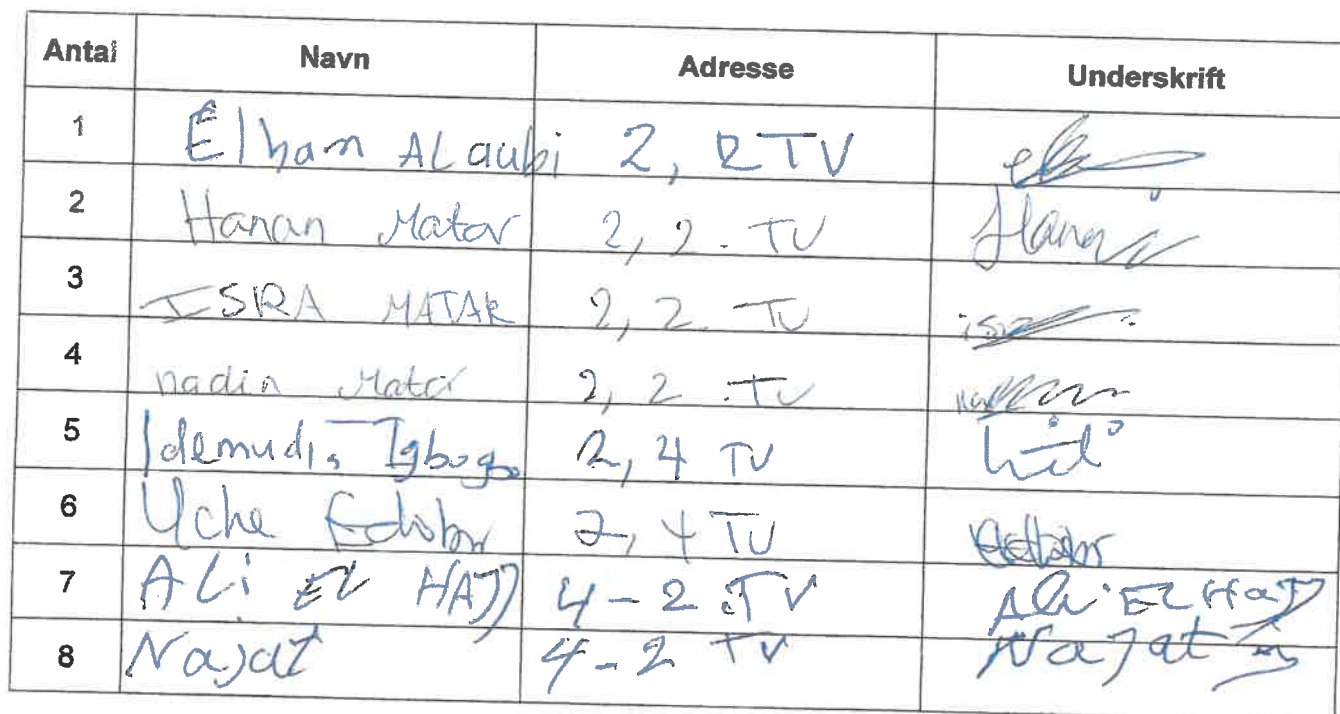 Antal Navn Adresse Underskrift
1 Elham ALaubi 2, 2 TV
2 Hanan Matar 2, 2. TV Hanan
3 ISRA MATAR 2, 2. TV
4 nadin Matar 2, 2. TV
5 Idemudia 2, 4 TV
6 Uche 2, 4 TV
7 Ali EL HAJJ 4-2 TV Ali EL HAJJ
8 Najat 4-2 TV Najat